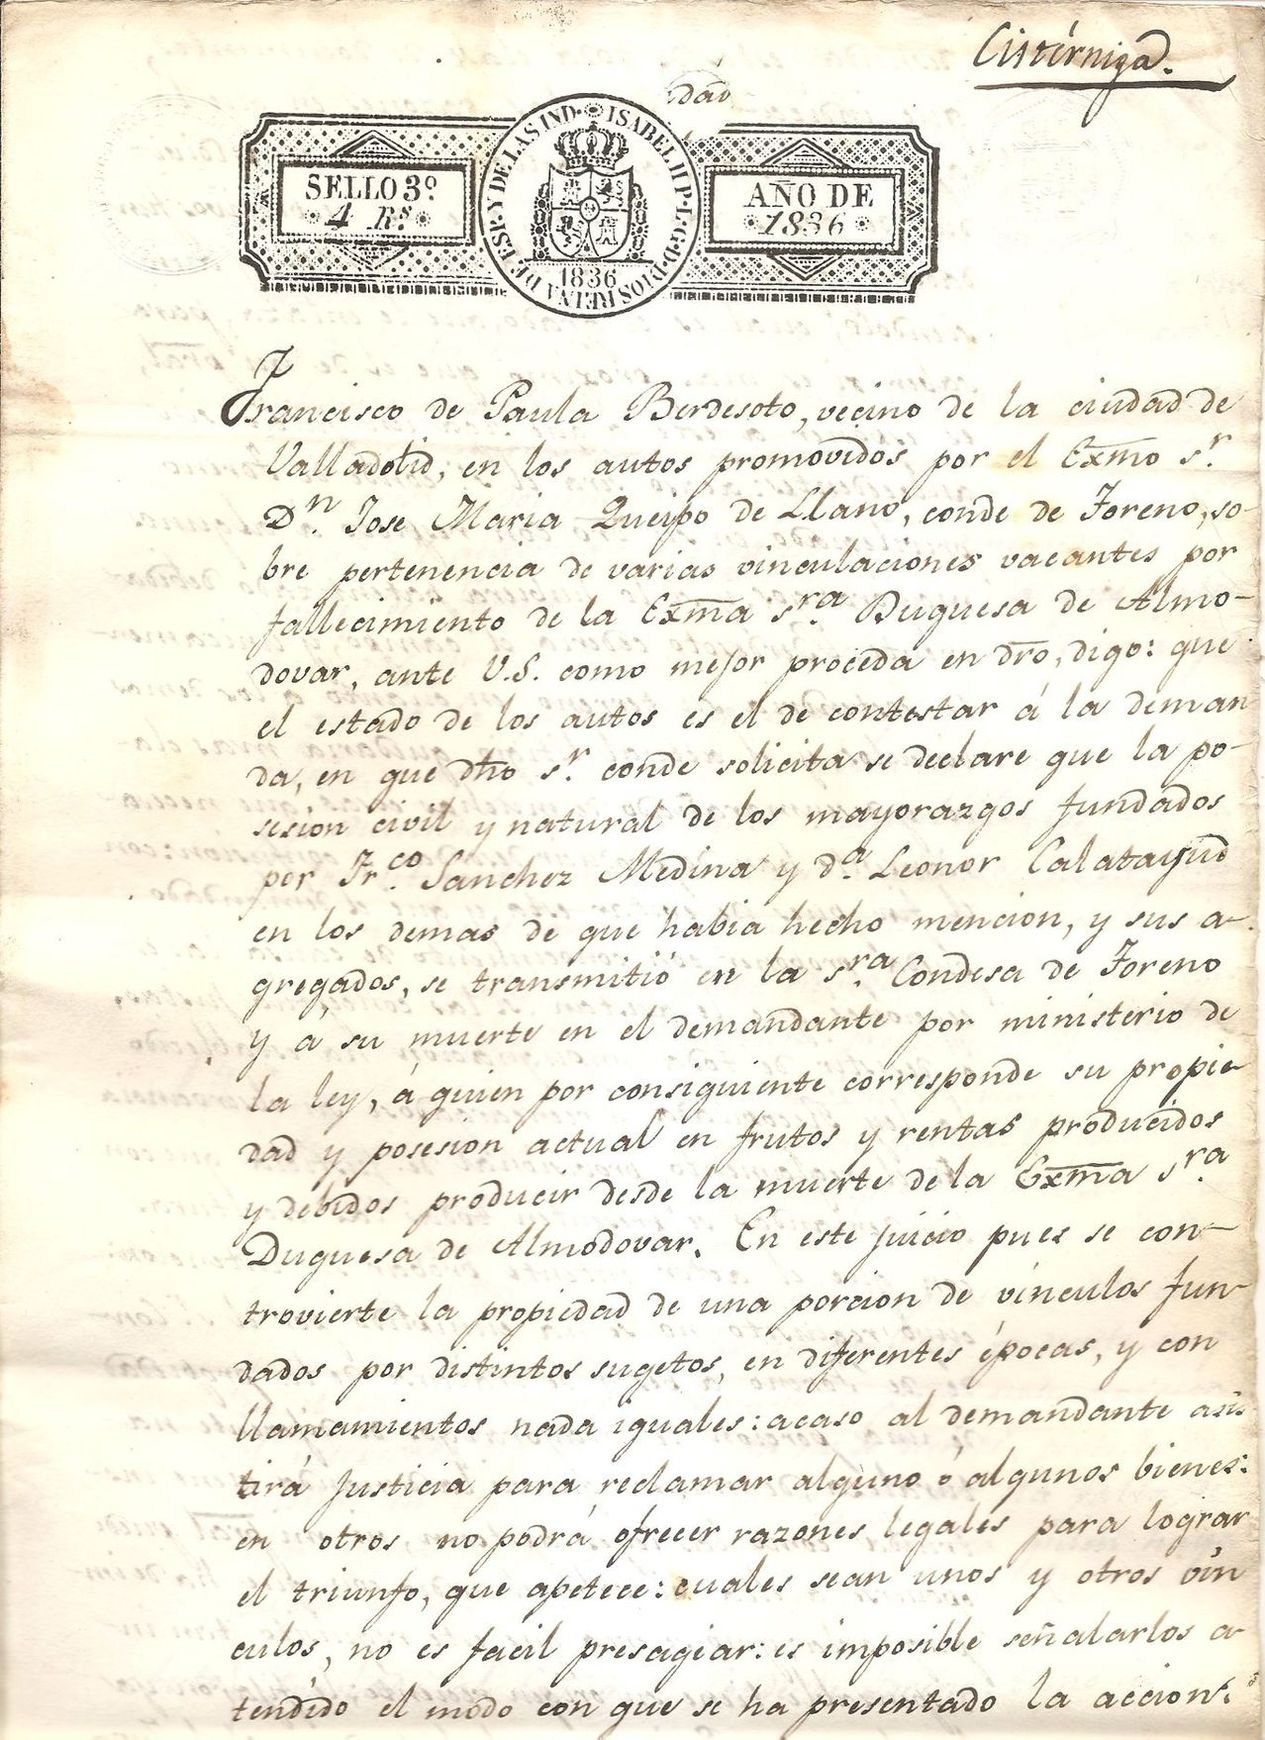 Cistérniga.
dad
SELLO 3º
4 Rs
ISABEL II P. L. G. D. DIOS REINA DE ESP. Y DE LAS IND.
1836
AÑO DE
1836
Francisco de Paula Berdesoto, vecino de la ciudad de
Valladolid, en los autos promovidos por el Exmo sr.
Dn. Jose Maria Queipo de Llano, conde de Toreno, so-
bre pertenencia de varias vinculaciones vacantes por
fallecimiento de la Exma sra. Duquesa de Almo-
dovar, ante V.S. como mejor proceda en dro, digo: que
el estado de los autos es el de contestar á la deman
da, en que dho sr. conde solicita se declare que la po-
sesion civil y natural de los mayorazgos fundados
por Frco. Sanchez Medina y da. Leonor Calatayud
en los demas de que habia hecho mencion, y sus a-
gregados, se transmitió en la sra. Condesa de Toreno
y á su muerte en el demandante por ministerio de
la ley, á quien por consiguiente corresponde su propie-
dad y posesion actual en frutos y rentas producidos
y debidos producir desde la muerte de la Exma sra.
Duquesa de Almodovar. En este juicio pues se con-
trovierte la propiedad de una porcion de vínculos fun-
dados por distintos sugetos, en diferentes épocas, y con
llamamientos nada iguales: acaso al demandante asis
tirá justicia para reclamar alguno ó algunos bienes:
en otros no podrá ofrecer razones legales para lograr
el triunfo, que apetece: cuales sean unos y otros vín
culos, no es facil presagiar: es imposible señalarlos a-
tendido el modo con que se ha presentado la accion: